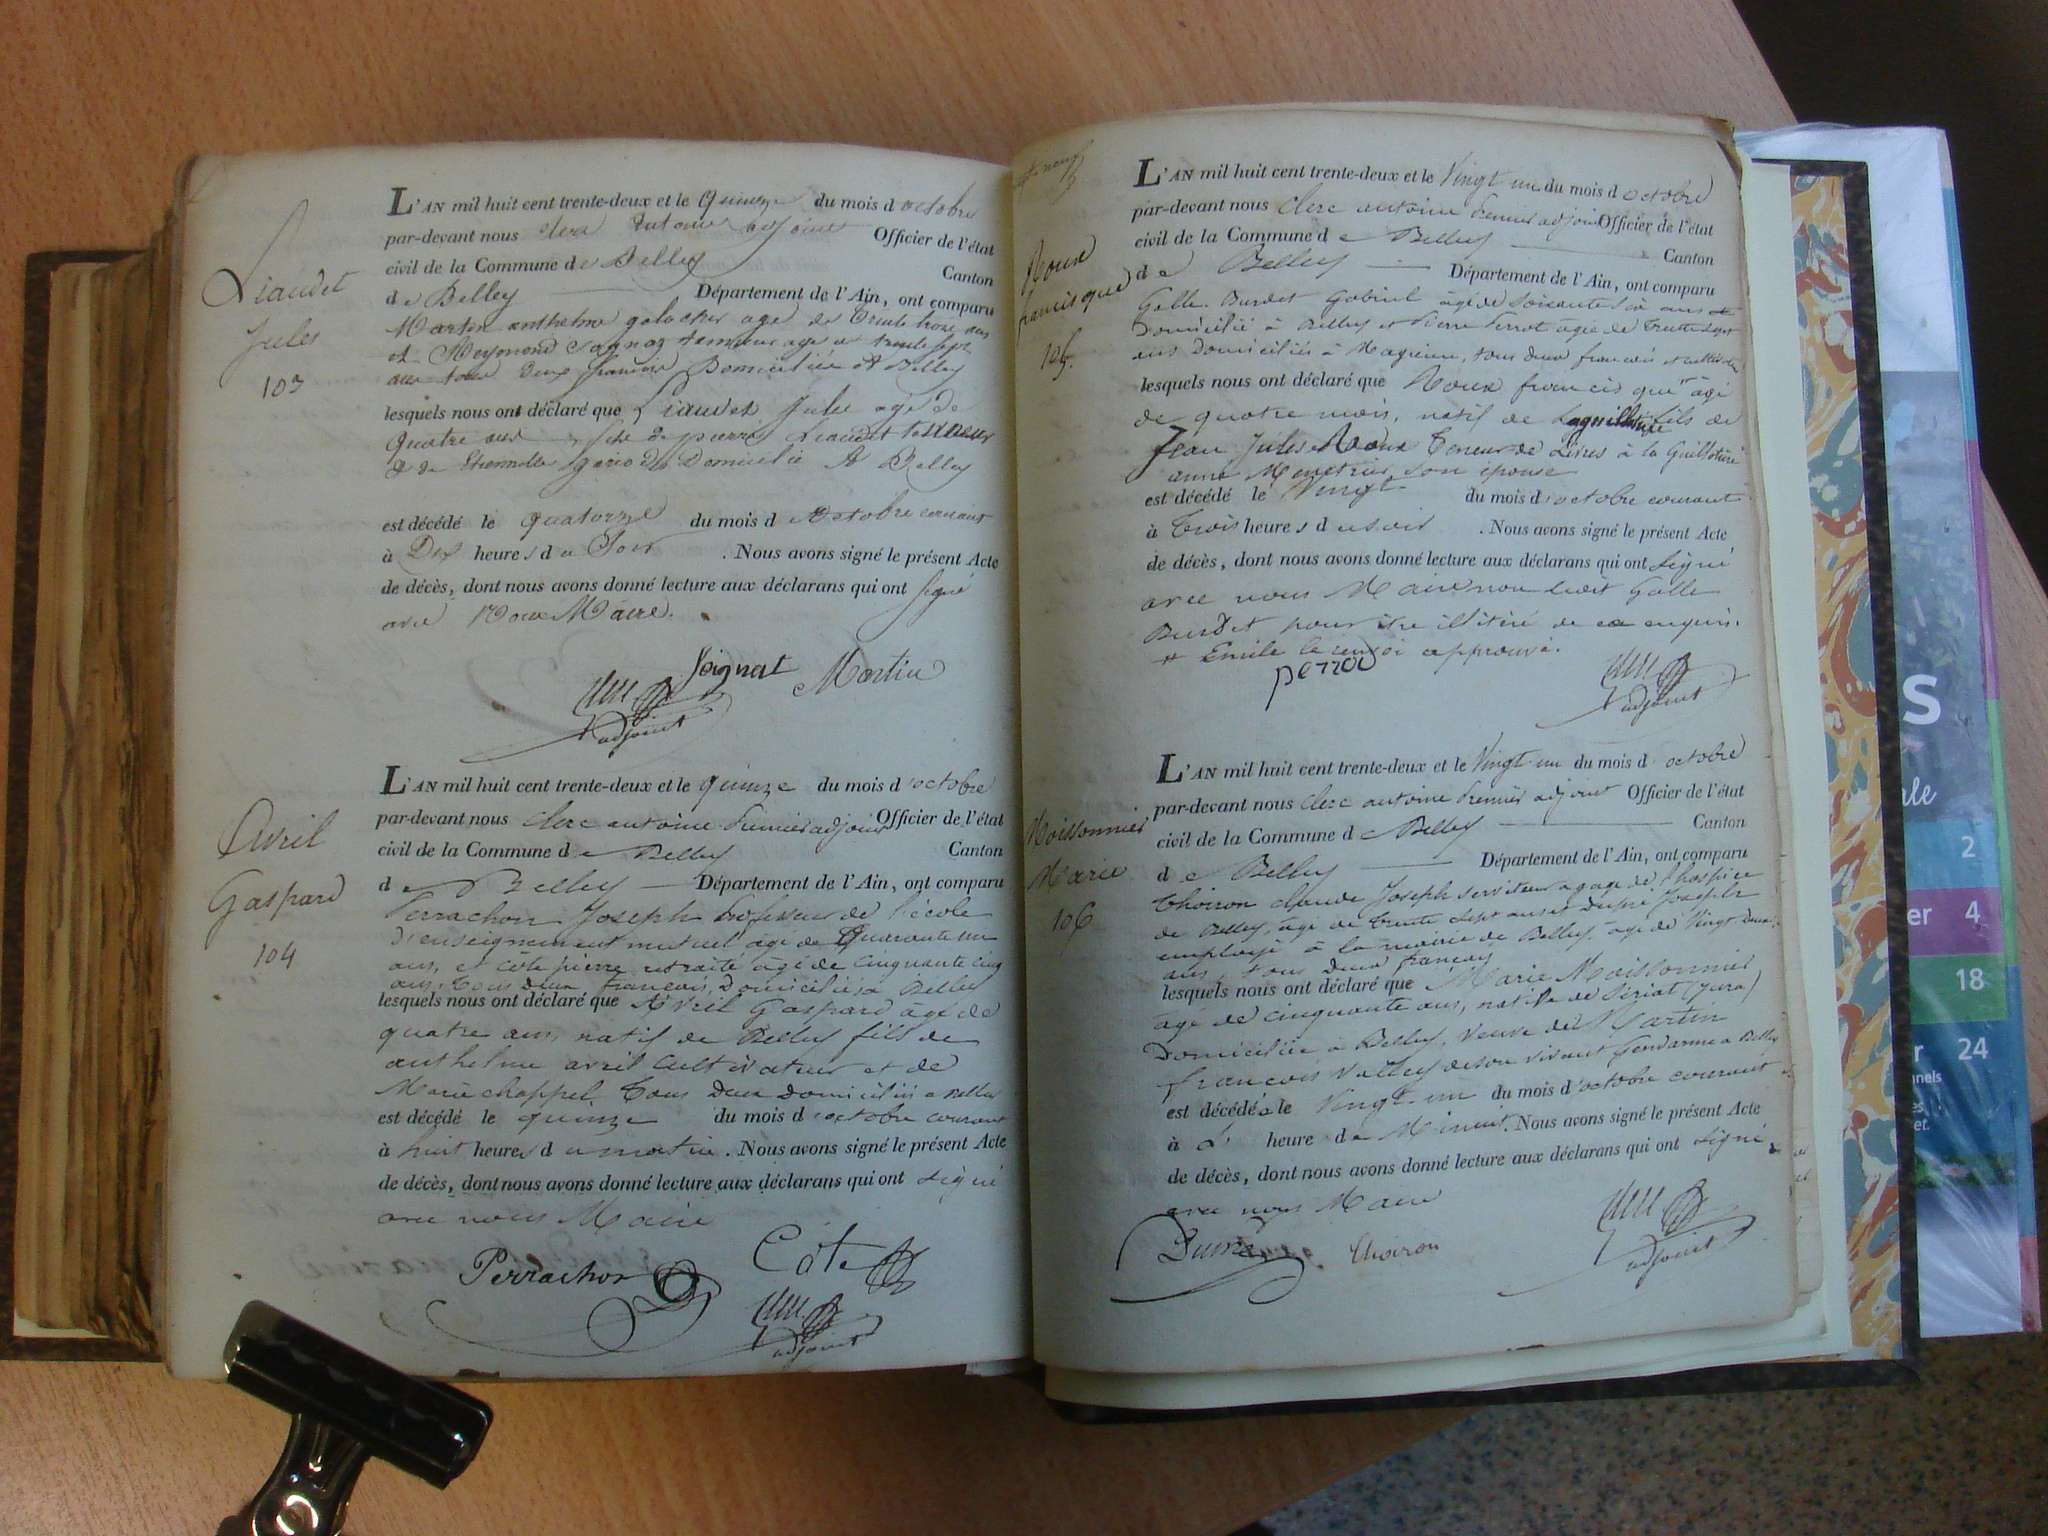 Liaudet
Jules
103
L'AN mil huit cent trente-deux et le Quinze du mois d'octobre
par-devant nous Clerc Antoine adjoint Officier de l'état
civil de la Commune de Belley Canton
de Belley Département de l'Ain, ont comparu
Martin anthelme galocher age de trente trois ans
et Reymond tanneur age de trente sept
ans tous deux francais Domiciliés A Belley
lesquels nous ont déclaré que Liaudet Jules agé de
quatre ans fils de pierre Liaudet tanneur
& de Domicilié A Belley
est décédé le quatorze du mois d'Octobre courant
à Dix heures du Soir. Nous avons signé le présent Acte
de décès, dont nous avons donné lecture aux déclarans qui ont Signé
avec Nous Maire.
Seignat Martin
adjoint
Avril
Gaspard
104
L'AN mil huit cent trente-deux et le quinze du mois d'octobre
par-devant nous Clerc antoine Premier adjoint Officier de l'état
civil de la Commune de Belley Canton
de Belley Département de l'Ain, ont comparu
Perrachon Joseph Professeur de l'école
d'enseignement mutuel âgé de Quarante un
ans, et Côte pierre retraité âgé de cinquante cinq
ans, tous deux francais, Domiciliés a Belley
lesquels nous ont déclaré que Avril Gaspard âgé de
quatre ans, natif de Belley fils de
anthelme avril Cultivateur et de
Marie chappel Tous Deux Domiciliés a Belley
est décédé le quinze du mois d'octobre courant
à huit heures du matin. Nous avons signé le présent Acte
de décès, dont nous avons donné lecture aux déclarans qui ont signé
avec nous Maire
Perrachon Côte
adjoint
Roux
francisque
105.
L'AN mil huit cent trente-deux et le Vingt un du mois d'octobre
par-devant nous Clerc antoine Premier adjoint Officier de l'état
civil de la Commune de Belley Canton
de Belley Département de l'Ain, ont comparu
Golle-Burdet Gabriel âgé de soixante ans
Domicilié à Belley et Pierre Perrot âgé de trente sept
ans Domiciliés à Magnieu, tous deux francais
lesquels nous ont déclaré que Roux francisque # âgé
de quatre mois, natif de Laguillotière fils de
Jean Jules Roux Teneur de Livres à la Guillotière
anne son épouse
est décédé le Vingt du mois d'octobre courant
à trois heures du soir. Nous avons signé le présent Acte
de décès, dont nous avons donné lecture aux déclarans qui ont signé
avec nous Maire non ledit Golle
Burdet pour être illitéré de ce enquis.
# Emile le renvoi approuvé.
perrod
adjoint
Moissonnier
Marie
106
L'AN mil huit cent trente-deux et le Vingt un du mois d'octobre
par-devant nous Clerc antoine Premier adjoint Officier de l'état
civil de la Commune de Belley Canton
de Belley Département de l'Ain, ont comparu
Thoiron claude Joseph serviteur a gage de l'hospice
de Belley, âgé de trente sept ans et Dupré Joseph
employé à la mairie de Belley âgé de Vingt Deux
ans, tous deux français
lesquels nous ont déclaré que Marie Moissonnier
âgé de cinquante ans, native de (jura)
Domiciliée à Belley, Veuve de Martin
françois de son vivant Gendarme a Belley
est décédée le Vingt-un du mois d'octobre courant
à L' heure de Minuit. Nous avons signé le présent Acte
de décès, dont nous avons donné lecture aux déclarans qui ont signé
avec nous Maire
Dupré Thoiron
adjoint
S
2
4
18
24